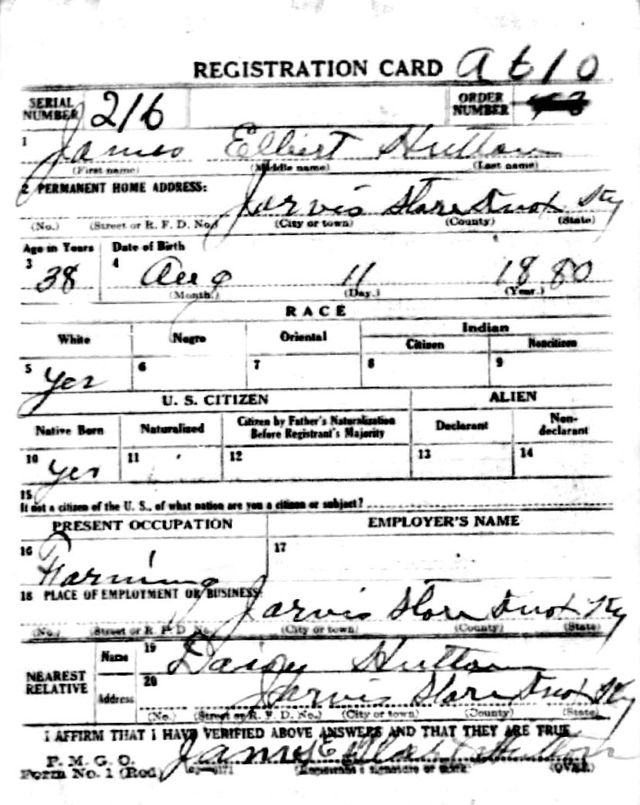 REGISTRATION CARD A 610
SERIAL NUMBER 216 ORDER NUMBER
1 James Elbert Hutton
(First name) (Middle name) (Last name)
2 PERMANENT HOME ADDRESS:
Jarvis Store Knox Ky
(No.) (Street or R. F. D. No.) (City or town) (County) (State)
Age in Years Date of Birth
3 38 4 Aug 11 1880
(Month.) (Day.) (Year.)
RACE
White Negro Oriental Indian
Citizen Noncitizen
5 Yes 6 7 8 9
U. S. CITIZEN ALIEN
Native Born Naturalized Citizen by Father's Naturalization Before Registrant's Majority Declarant Non-declarant
10 Yes 11 12 13 14
15
If not a citizen of the U. S., of what nation are you a citizen or subject?
PRESENT OCCUPATION EMPLOYER'S NAME
16 Farming 17
18 PLACE OF EMPLOYMENT OR BUSINESS:
Jarvis Store Knox Ky
(No.) (Street or R. F. D. No.) (City or town) (County) (State)
NEAREST RELATIVE Name 19 Daisy Hutton
Address 20 Jarvis Store Knox Ky
(No.) (Street or R. F. D. No.) (City or town) (County) (State)
I AFFIRM THAT I HAVE VERIFIED ABOVE ANSWERS AND THAT THEY ARE TRUE
P. M. G. O.
Form No. 1 (Red) James Elbert Hutton
(Registrant's signature or mark) (OVER)